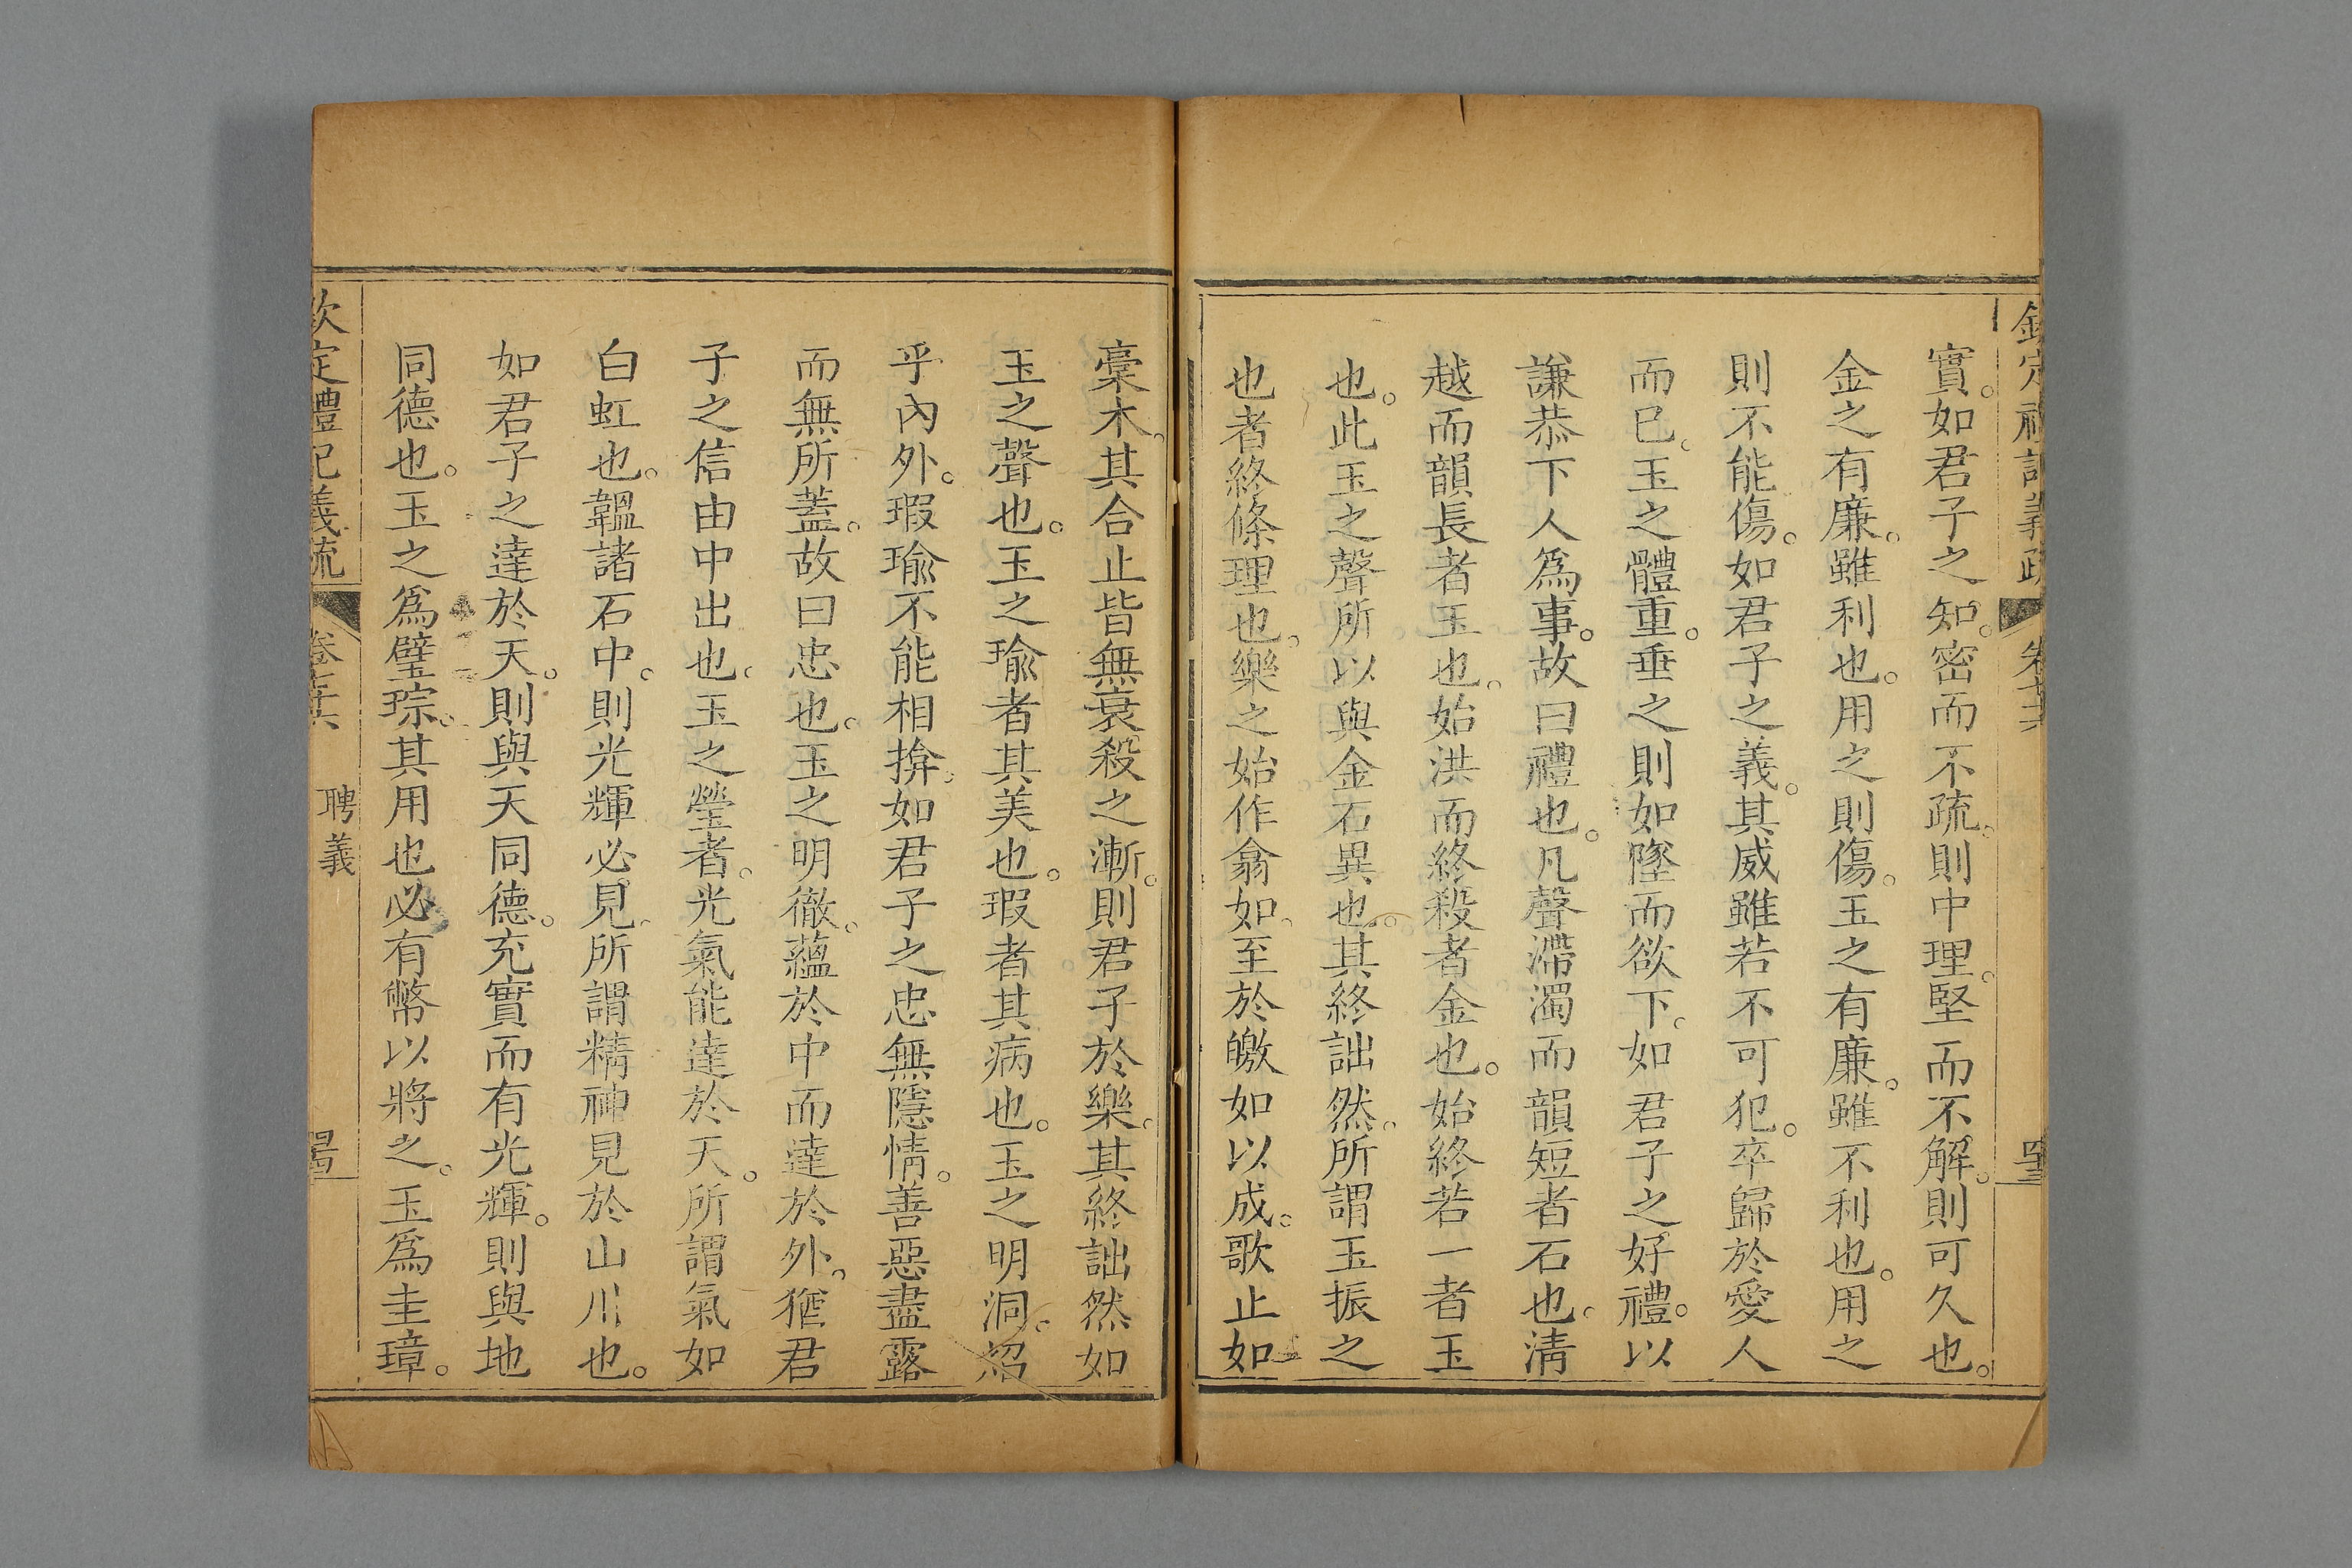 欽定禮記義疏 卷七十六
實。如君子之知。密而不疏。則中理。堅而不解。則可久也。
金之有廉。雖利也。用之則傷。玉之有廉。雖不利也。用之
則不能傷。如君子之義。其威雖若不可犯。卒歸於愛人
而已。玉之體重。垂之則如墜而欲下。如君子之好禮。以
謙恭下人爲事。故曰禮也。凡聲滯濁而韻短者石也。淸
越而韻長者玉也。始洪而終殺者金也。始終若一者玉
也。此玉之聲所以與金石異也。其終詘然。所謂玉振之
也者終條理也。樂之始作翕如。至於皦如以成。歌止如
槀木。其合止皆無衰殺之漸。則君子於樂。其終詘然如
玉之聲也。玉之瑜者其美也。瑕者其病也。玉之明洞。炤
乎內外。瑕瑜不能相揜。如君子之忠無隱情。善惡盡露
而無所蓋。故曰忠也。玉之明徹。蘊於中而達於外。猶君
子之信由中出也。玉之瑩者。光氣能達於天。所謂氣如
白虹也。韞諸石中。則光輝必見。所謂精神見於山川也。
如君子之達於天。則與天同德。充實而有光輝。則與地
同德也。玉之爲璧琮。其用也必有幣以將之。玉爲圭璋。
欽定禮記義疏 卷七十六 聘義